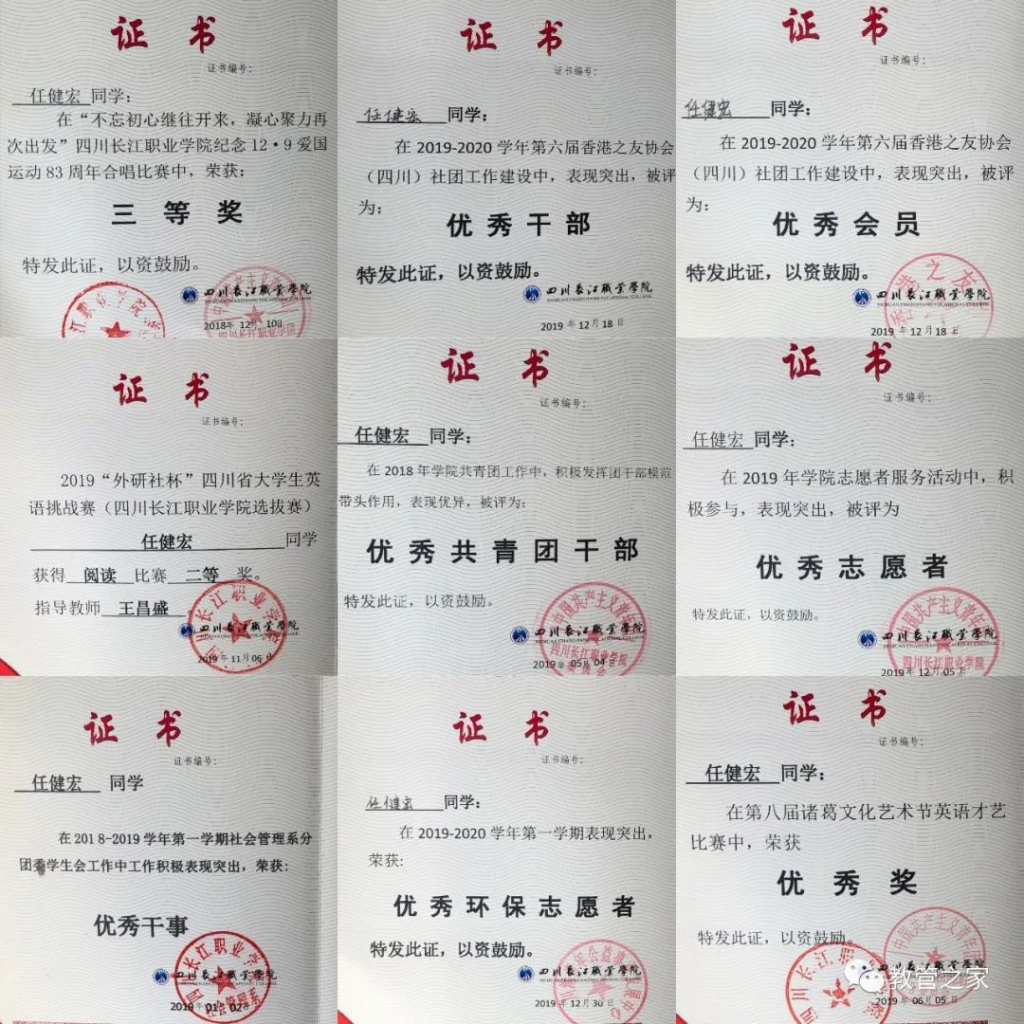 证书
证书编号：
任健宏 同学：
在“不忘初心继往开来，凝心聚力再
次出发”四川长江职业学院纪念12·9爱国
运动83周年合唱比赛中，荣获：
三等奖
特发此证，以资鼓励。
四川长江職業學院
2018年 12月 10日
证书
证书编号：
任健宏 同学：
在 2019-2020 学年第六届香港之友协会
（四川）社团工作建设中，表现突出，被评
为：
优秀干部
特发此证，以资鼓励。
四川长江職業學院
2019 年 12 月 18 日
证书
证书编号：
任健宏 同学：
在 2019-2020 学年第六届香港之友协会
（四川）社团工作建设中，表现突出，被评
为：
优秀会员
特发此证，以资鼓励。
四川长江職業學院
2019 年 12 月 18 日
证书
证书编号：
2019“外研社杯”四川省大学生英
语挑战赛（四川长江职业学院选拔赛）
任健宏 同学
获得 阅读 比赛 二等 奖。
指导教师 王昌盛
四川长江職業學院
2019 年 11月 06 日
证书
证书编号：
任健宏 同学：
在 2018 年学院共青团工作中，积极发挥团干部模范
带头作用，表现优异，被评为：
优秀共青团干部
特发此证，以资鼓励。
四川长江職業學院
2019 年 05月 04 日
证书
证书编号：
任健宏 同学：
在 2019 年学院志愿者服务活动中，积
极参与，表现突出，被评为
优秀志愿者
特发此证，以资鼓励。
四川长江職業學院
四川长江职业学院
2019 年 12月 05 日
证书
证书编号：
任健宏 同学
在 2018-2019 学年第一学期社会管理系分
团委学生会工作中工作积极表现突出，荣获：
优秀干事
四川长江職業學院
2019年 01月 02日
证书
证书编号：
任健宏 同学：
在 2019-2020 学年第一学期表现突出，
荣获：
优秀环保志愿者
特发此证，以资鼓励。
四川长江職業學院
2019 年 12月 30 日
证书
证书编号：
任健宏 同学：
在第八届诸葛文化艺术节英语才艺
比赛中，荣获
优秀奖
特发此证，以资鼓励。
四川长江
2019 年 06月 05 日
教管之家